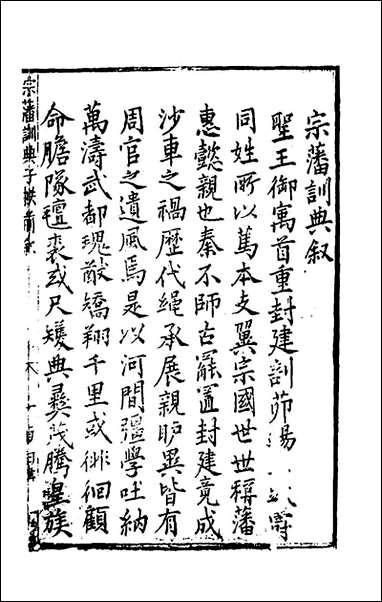 宗藩訓典叙
聖王御寓首重封建訓茆錫
同姓所以篤本支翼宗國世世稱藩
惠懿親也秦不師古罷置封建竟成
沙車之禍歷代繩承展親昭異皆有
周官之遺風焉是以河間彊學吐納
萬濤武都瑰猷矯翔千里或徘徊顧
命膽隊氊裘或尺矱典彞茂騰皇族
宗藩訓典子